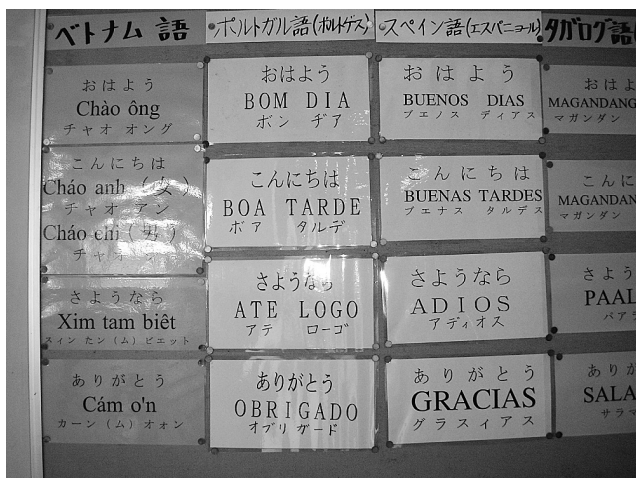 ベトナム 語
おはよう
Chào ông
チャオ オング
こんにちは
Cháo anh (女)
チャオ アン
Cháo chi (男)
チャオ
さようなら
Xim tam biêt
スィン たン(ム)ビエット
ありがとう
Cám o'n
カーン(ム)オォン
ポルトガル語(ポルトゲス)
おはよう
BOM DIA
ボン ヂア
こんにちは
BOA TARDE
ボア タルデ
さようなら
ATE LOGO
アテ ローゴ
ありがとう
OBRIGADO
オブリガード
スペイン語(エスパニョール)
おはよう
BUENOS DIAS
ブエノス ディアス
こんにちは
BUENAS TARDES
ブエナス タルデス
さようなら
ADIOS
アディオス
ありがとう
GRACIAS
グラスィアス
タガログ語(
おはよ
MAGANDANG
マガンダン
こんに
MAGANDAN
マガンダン
さよう
PAAL
パア
ありが
SALA
サラマ